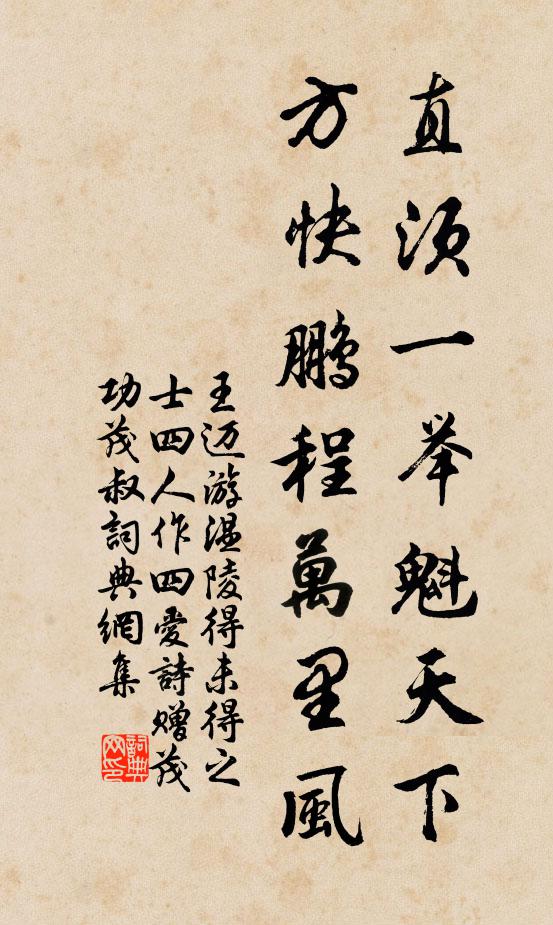 直须一举魁天下
方快鹏程萬里風
王迈游温陵得未得之
士四人作四爱詩赠茂
功茂叔詞典網集
詞典
网印